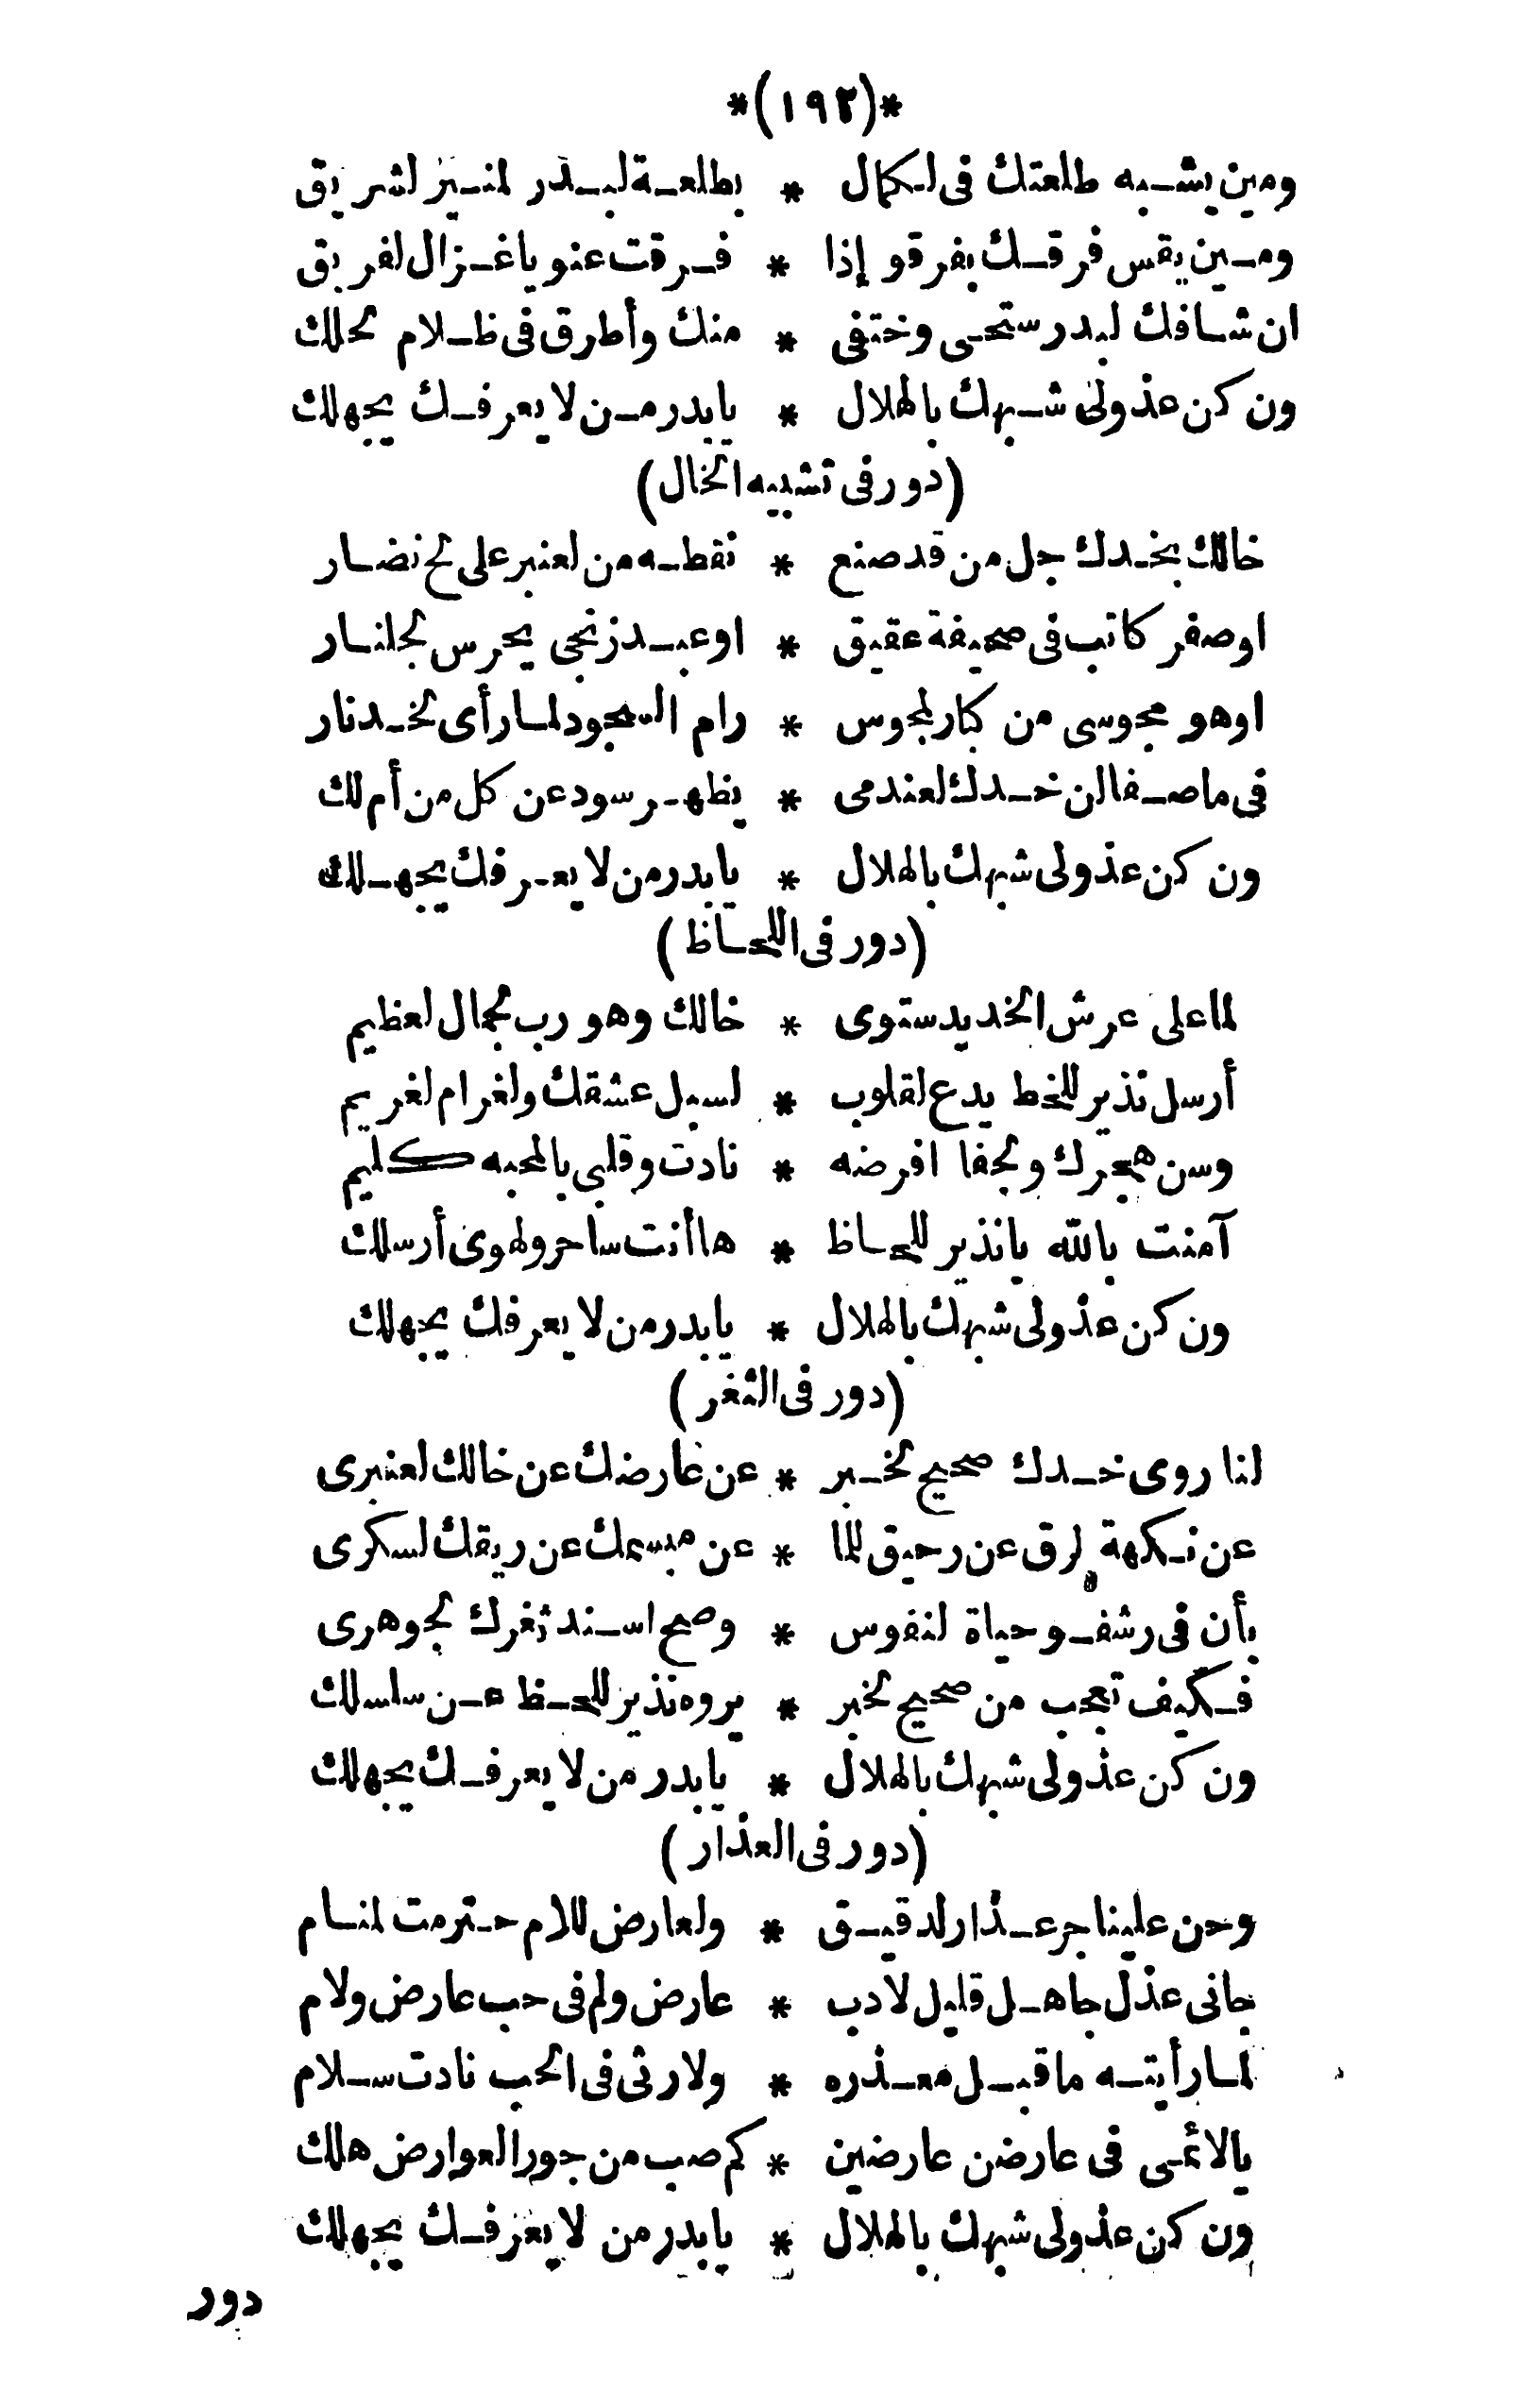 *(١٩٢)*
ومين يشبه طلعتك فى لكمال * بطلعة لبدر لمنير لشريق
ومين يقس فرقك بفرقو إذا * فرقت عنو يا غزال لفريق
ان شافك لبدر ستحى وختفى * منك وأطرق فى ظلام لحلك
ون كن عذولى شبهك بالهلال * يا بدر من لا يعرفك يجهلك
(دور فى تشبيه الخال)
خالك بخدك جل من قد صنع * نقطه من لعنبر على لخ نضار
او صفر كاتب فى صحيفة عقيق * او عبد زنجى يحرس لجلنار
او هو مجوسى من كبار لمجوس * رام السجود لما رأى لخد نار
فى ما صفا لن خدك لعندمى * يظهر سود عن كل من أم لك
ون كن عذولى شبهك بالهلال * يا بدر من لا يعرفك يجهلك
(دور فى اللحاظ)
لما على عرش الخديد ستوى * خالك وهو رب لجمال لعظيم
أرسل نذير للخط يدع لقلوب * لسبل عشقك ولغرام لغريم
وسن هجرك ولجفا افرضه * نادت وقلبى بالمحبه كليم
آمنت بالله يا نذير للحاظ * ها أنت ساحر ولهوى أرسلك
ون كن عذولى شبهك بالهلال * يا بدر من لا يعرفك يجهلك
(دور فى الثغر)
لنا روى خدك صحيح لخبر * عن عارضك عن خالك لعنبرى
عن نكهة لرق عن رحيق للما * عن مبسمك عن ريقك لسكرى
بأن فى رشفو حياة لنفوس * وصح اسند ثغرك لجوهرى
فكيف تعجب من صحيح لخبر * يروه نذير للحظ عن سلسلك
ون كن عذولى شبهك بالهلال * يا بدر من لا يعرفك يجهلك
(دور فى العذار)
وحن علينا جر عذار لدقيق * ولعارض للام حترمت لمنام
جانى عذل جاهل قليل لادب * عارض ولم فى حب عارض ولام
لما رأيته ما قبل معذره * ولا رثى فى الحب نادت سلام
يا لائمى فى عارضن عارضين * كم صب من جور العوارض هلك
ون كن عذولى شبهك بالهلال * يا بدر من لا يعرفك يجهلك
دور